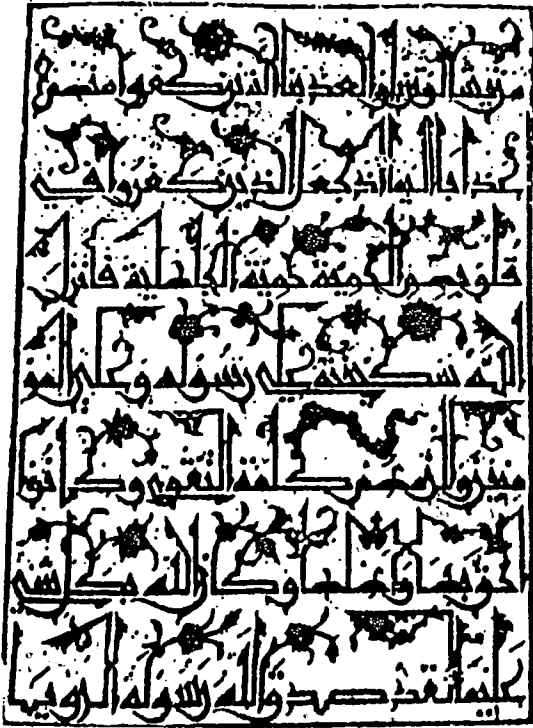 من يشاء لو تزيلوا لعذبنا الذين كفروا منهم
عذابا اليما اذ جعل الذين كفروا في
قلوبهم الحمية حمية الجاهلية فانزل
الله سكينته على رسوله وعلى المؤ
منين والزمهم كلمة التقوى وكانوا
احق بها واهلها وكان الله بكل شي
عليما لقد صدق الله رسوله الرويا